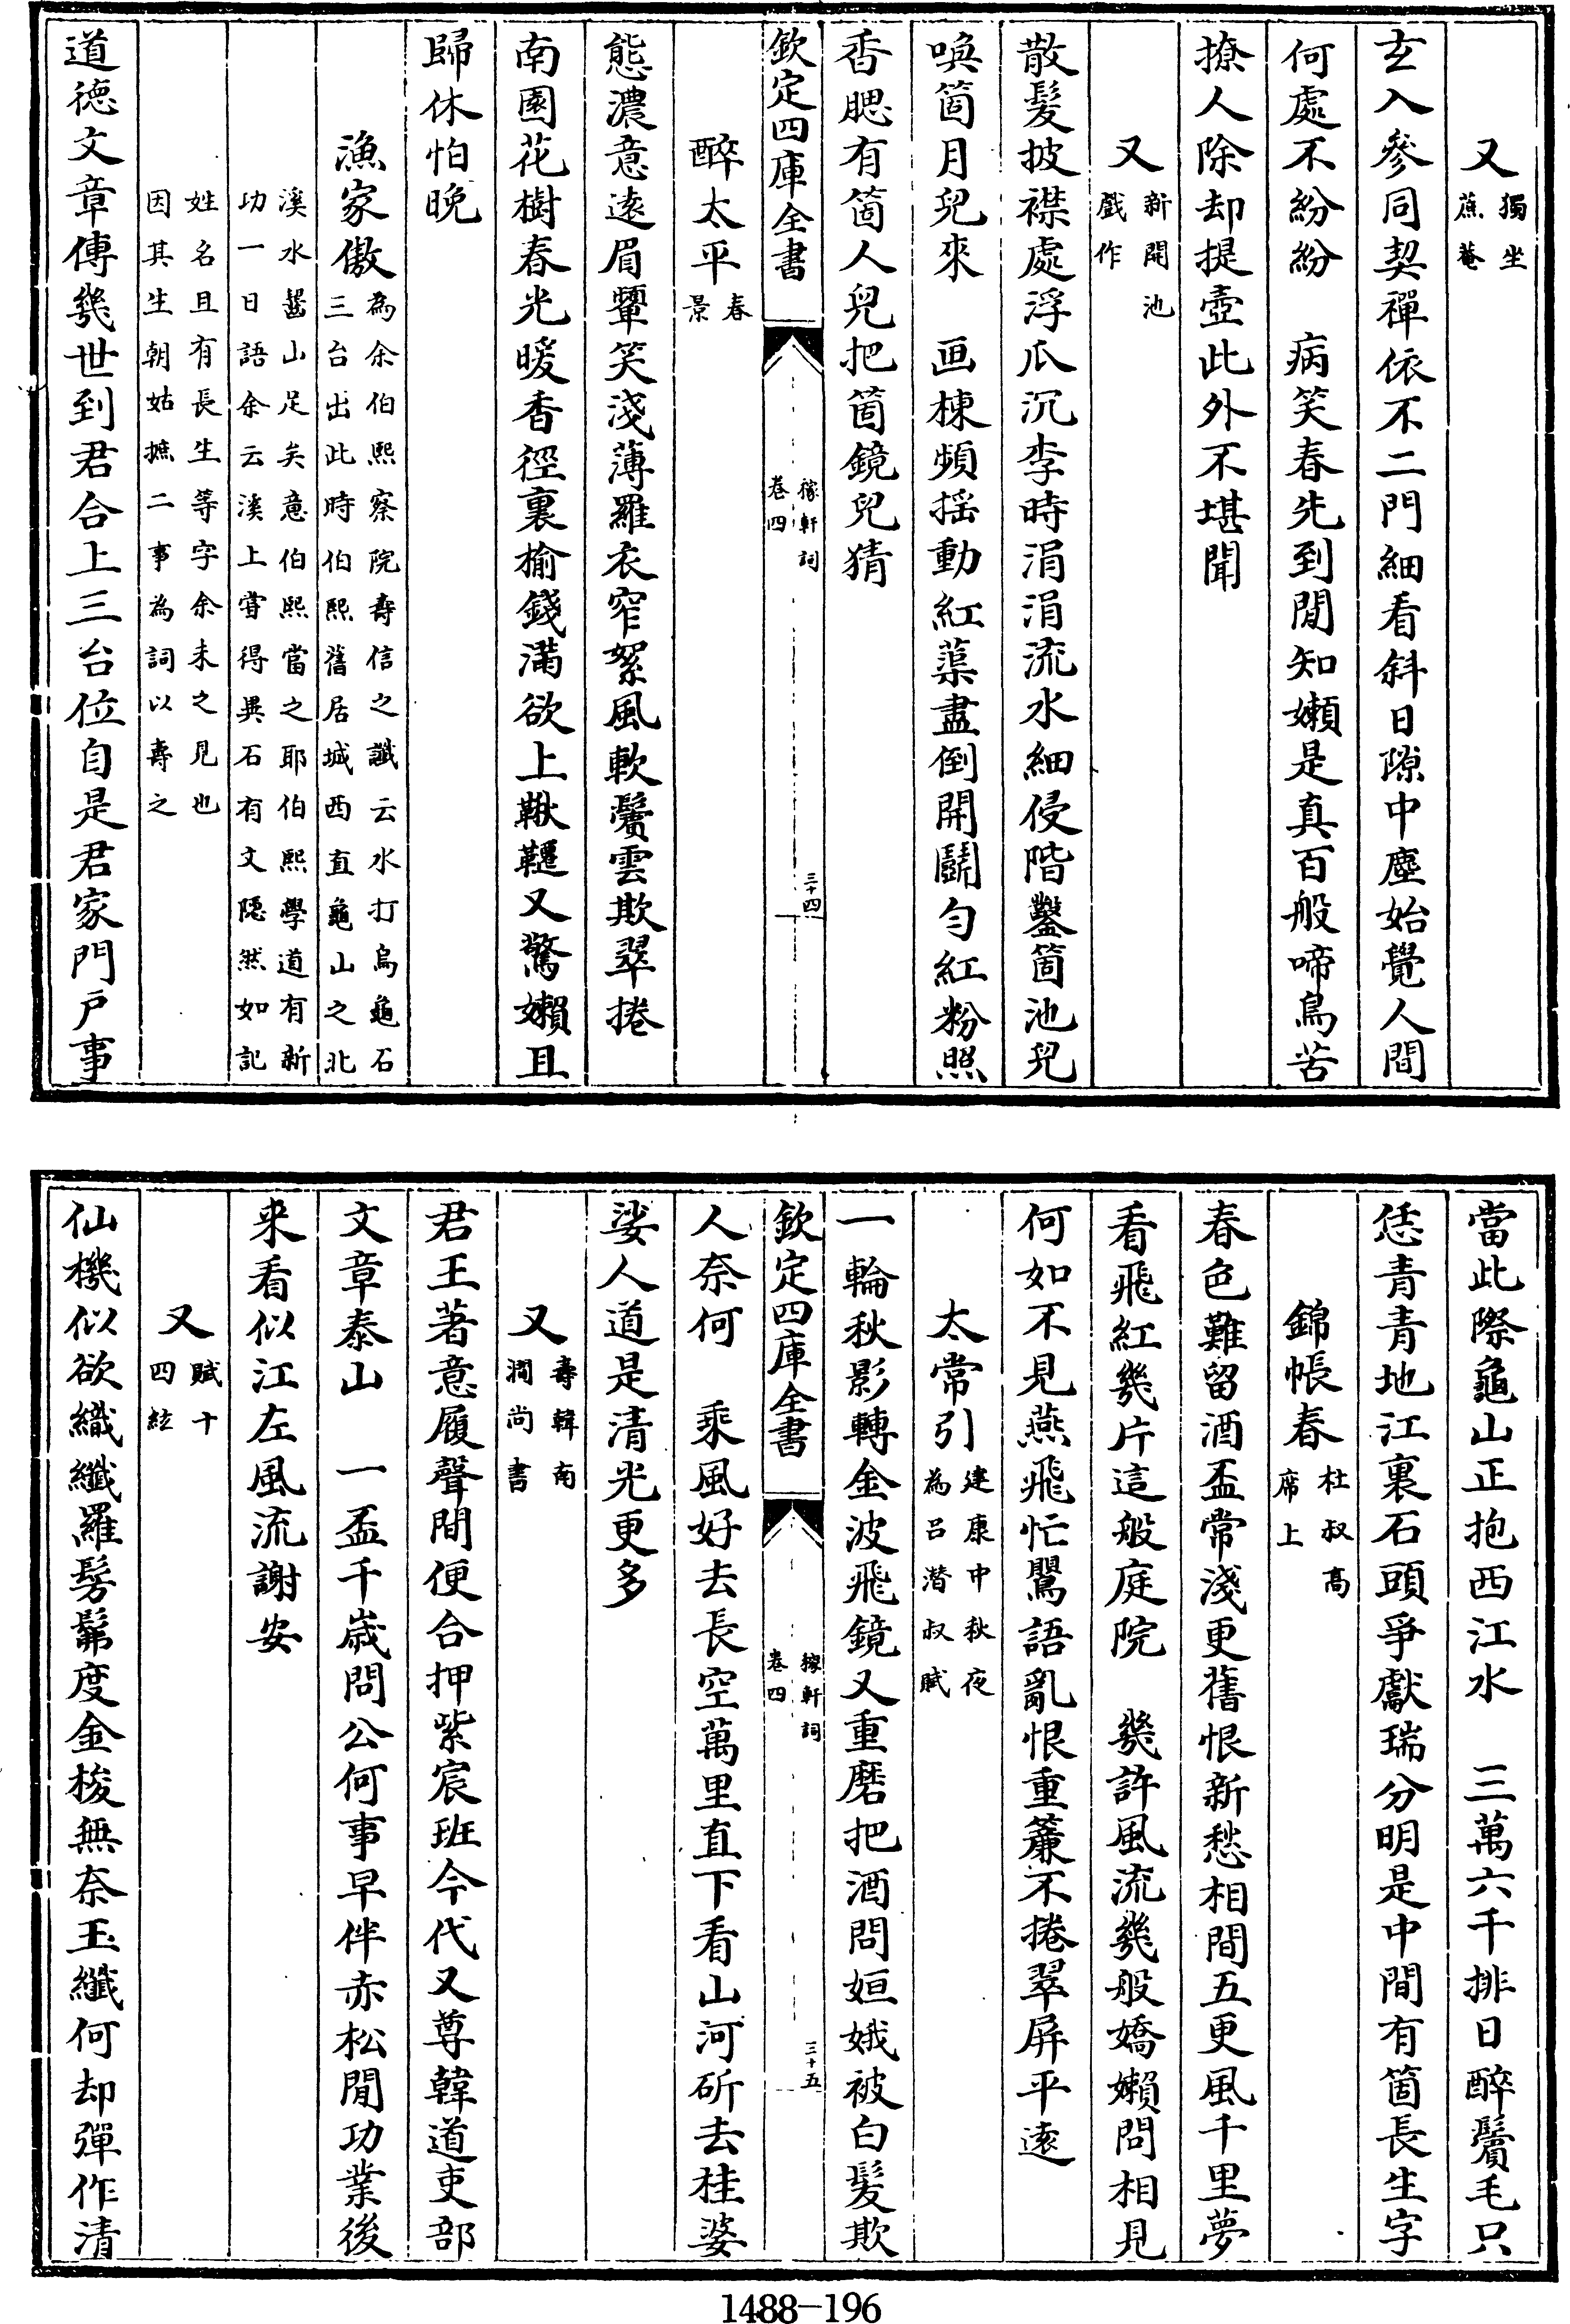 又獨坐蔗菴
玄入參同契禪依不二門細看斜日隙中塵始覺人間
何處不紛紛　病笑春先到閒知嬾是真百般啼鳥苦
撩人除却提壺此外不堪聞
又新開池戲作
散髮披襟處浮瓜沉李時涓涓流水細侵階鑿箇池兒
喚箇月兒來　画棟頻揺動紅蕖盡倒開鬭勻紅粉照
香腮有箇人兒把箇鏡兒猜
欽定四庫全書　稼軒詞卷四　三十四
醉太平春景
態濃意逺眉顰笑淺薄羅衣窄絮風軟鬢雲欺翠捲
南園花樹春光暖香徑裏榆錢滿欲上鞦韆又驚嬾且
歸休怕晚
漁家傲為余伯熙察院壽信之讖云水打烏龜石三台出此時伯熙舊居城西直龜山之北
溪水齧山足矣意伯熙當之耶伯熙學道有新功一日語余云溪上嘗得異石有文隠然如記
姓名且有長生等字余未之見也因其生朝姑摭二事為詞以壽之
道徳文章傳幾世到君合上三台位自是君家門戶事
當此際龜山正抱西江水　三萬六千排日醉鬢毛只
恁青青地江裏石頭爭獻瑞分明是中間有箇長生字
錦帳春杜叔高席上
春色難留酒盃常淺更舊恨新愁相間五更風千里夢
看飛紅幾片這般庭院　幾許風流幾般嬌嬾問相見
何如不見燕飛忙鶯語亂恨重簾不捲翠屏平逺
太常引建康中秋夜為吕潛叔賦
一輪秋影轉金波飛鏡又重磨把酒問姮娥被白髮欺
欽定四庫全書　稼軒詞卷四　三十五
人奈何　乘風好去長空萬里直下看山河斫去桂婆
娑人道是清光更多
又壽韓南澗尚書
君王著意履聲間便合押紫宸班今代又尊韓道吏部
文章泰山　一盃千歳問公何事早伴赤松閒功業後
来看似江左風流謝安
又賦十四絃
仙機似欲織纖羅髣髴度金梭無奈玉纖何却彈作清
1488—196